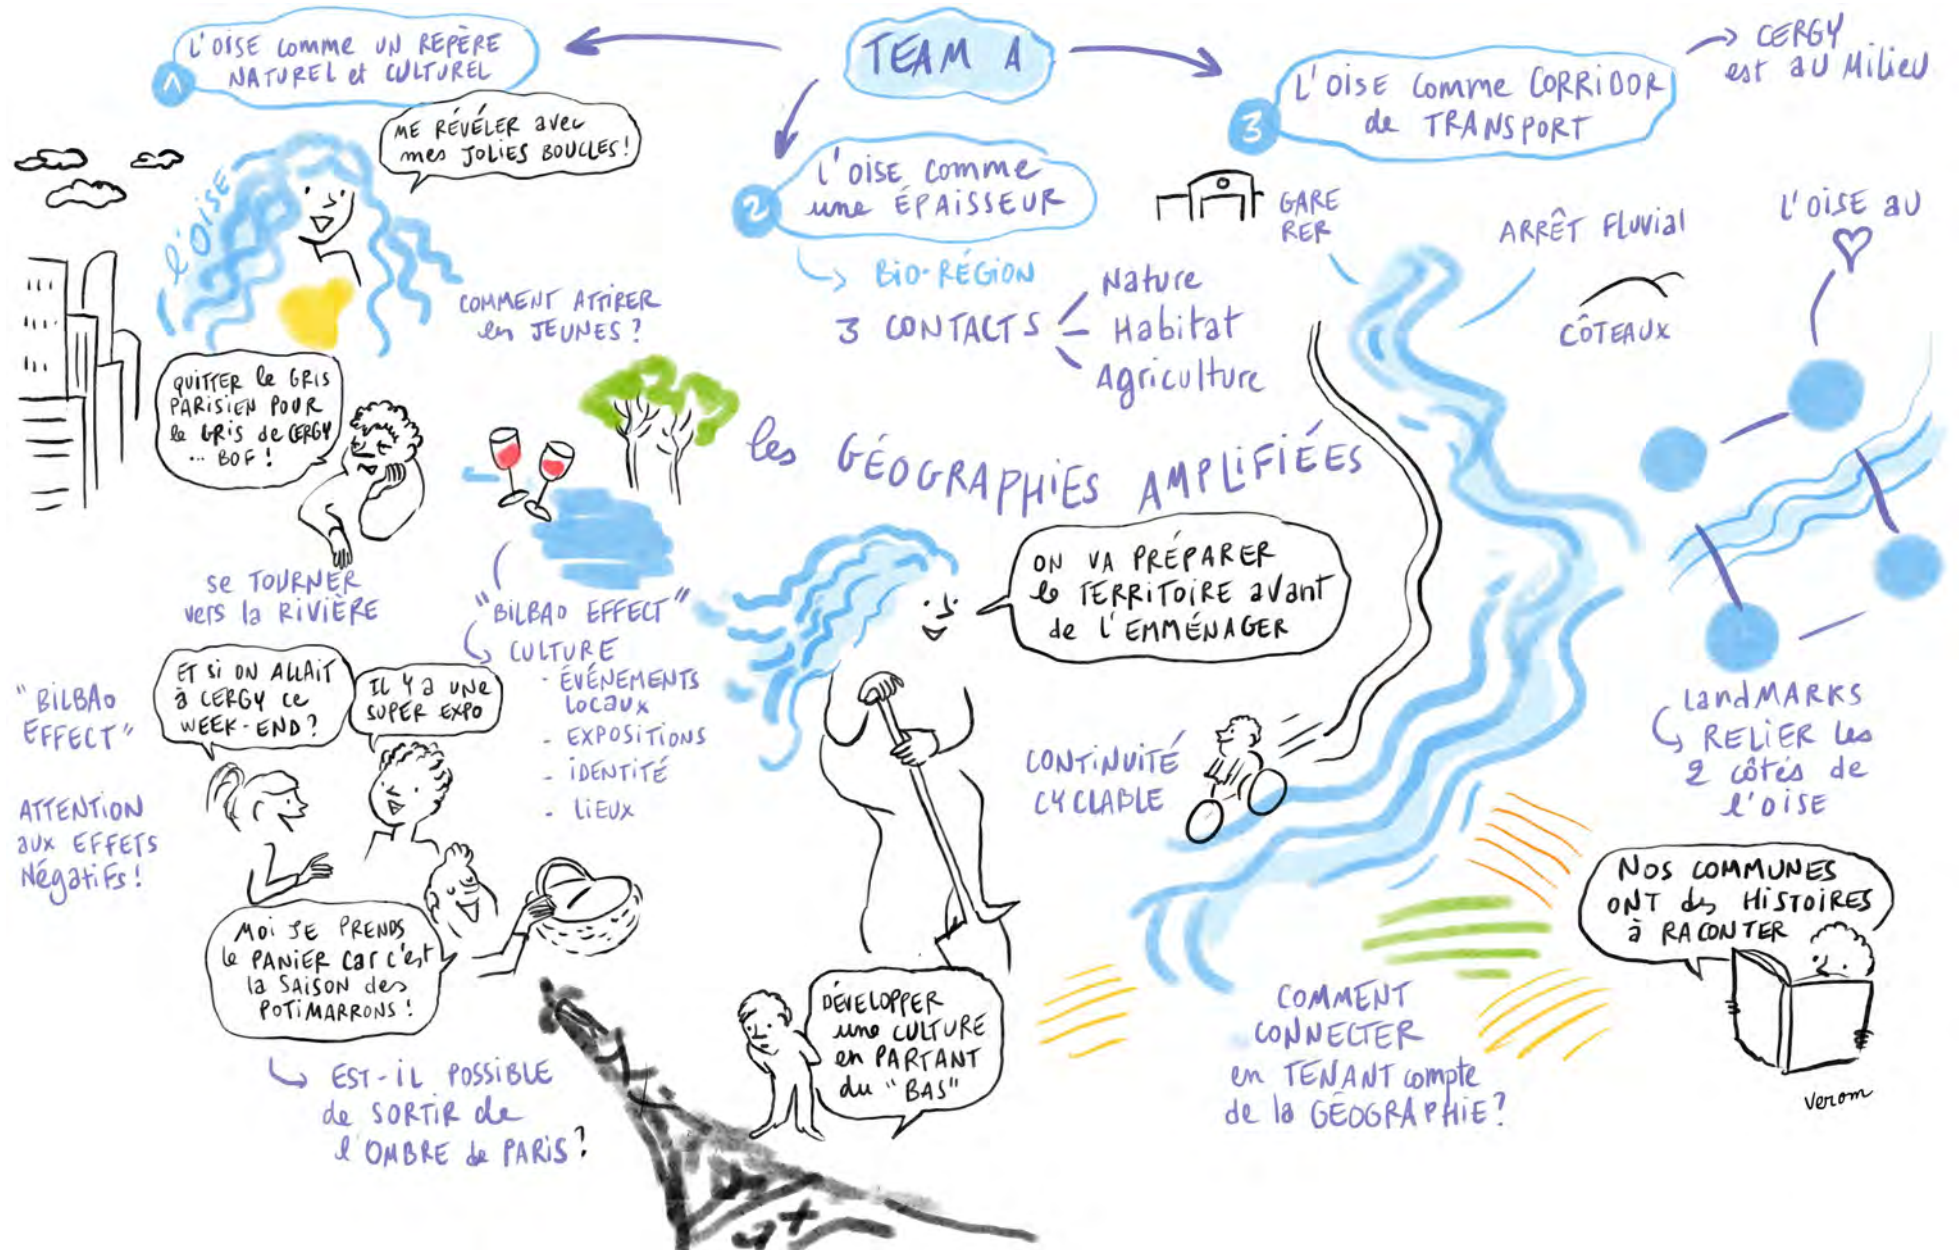 TEAM A
1
L'OISE comme UN REPÈRE
NATUREL et CULTUREL
ME RÉVÉLER avec
mes JOLIES BOUCLES!
l'OISE
COMMENT ATTIRER
les JEUNES ?
QUITTER le GRIS
PARISIEN POUR
le GRIS de CERGY
... BOF !
se TOURNER
vers la RIVIÈRE
"BILBAO EFFECT"
CULTURE
- ÉVÉNEMENTS
LOCAUX
- EXPOSITIONS
- IDENTITÉ
- LIEUX
"BILBAO
EFFECT"
ATTENTION
aux EFFETS
NégatiFs !
ET SI ON ALLAIT
à CERGY CE
WEEK-END ?
IL Y a UNE
SUPER EXPO
MOI JE PRENDS
le PANIER car c'est
la SAISON des
POTIMARRONS !
EST-IL POSSIBLE
de SORTIR de
l'OMBRE de PARIS ?
2
L'OISE comme
une ÉPAISSEUR
BIO-RÉGION
3 CONTACTS
Nature
Habitat
Agriculture
les GÉOGRAPHIES AMPLIFIÉES
ON VA PRÉPARER
le TERRITOIRE avant
de L'EMMÉNAGER
DÉVELOPPER
une CULTURE
en PARTANT
du "BAS"
3
L'OISE comme CORRIDOR
de TRANSPORT
CERGY
est au Milieu
GARE
RER
ARRÊT Fluvial
CÔTEAUX
L'OISE au
CONTINUITÉ
CYCLABLE
LandMARKS
RELIER les
2 côtés de
l'OISE
NOS COMMUNES
ONT des HISTOIRES
à RACONTER
COMMENT
CONNECTER
en TENANT compte
de la GÉOGRAPHIE ?
Verom